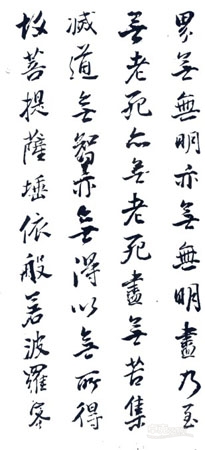 界無無明亦無無明盡乃至
無老死亦無老死盡無苦集
滅道無智亦無得以無所得
故菩提薩埵依般若波羅蜜